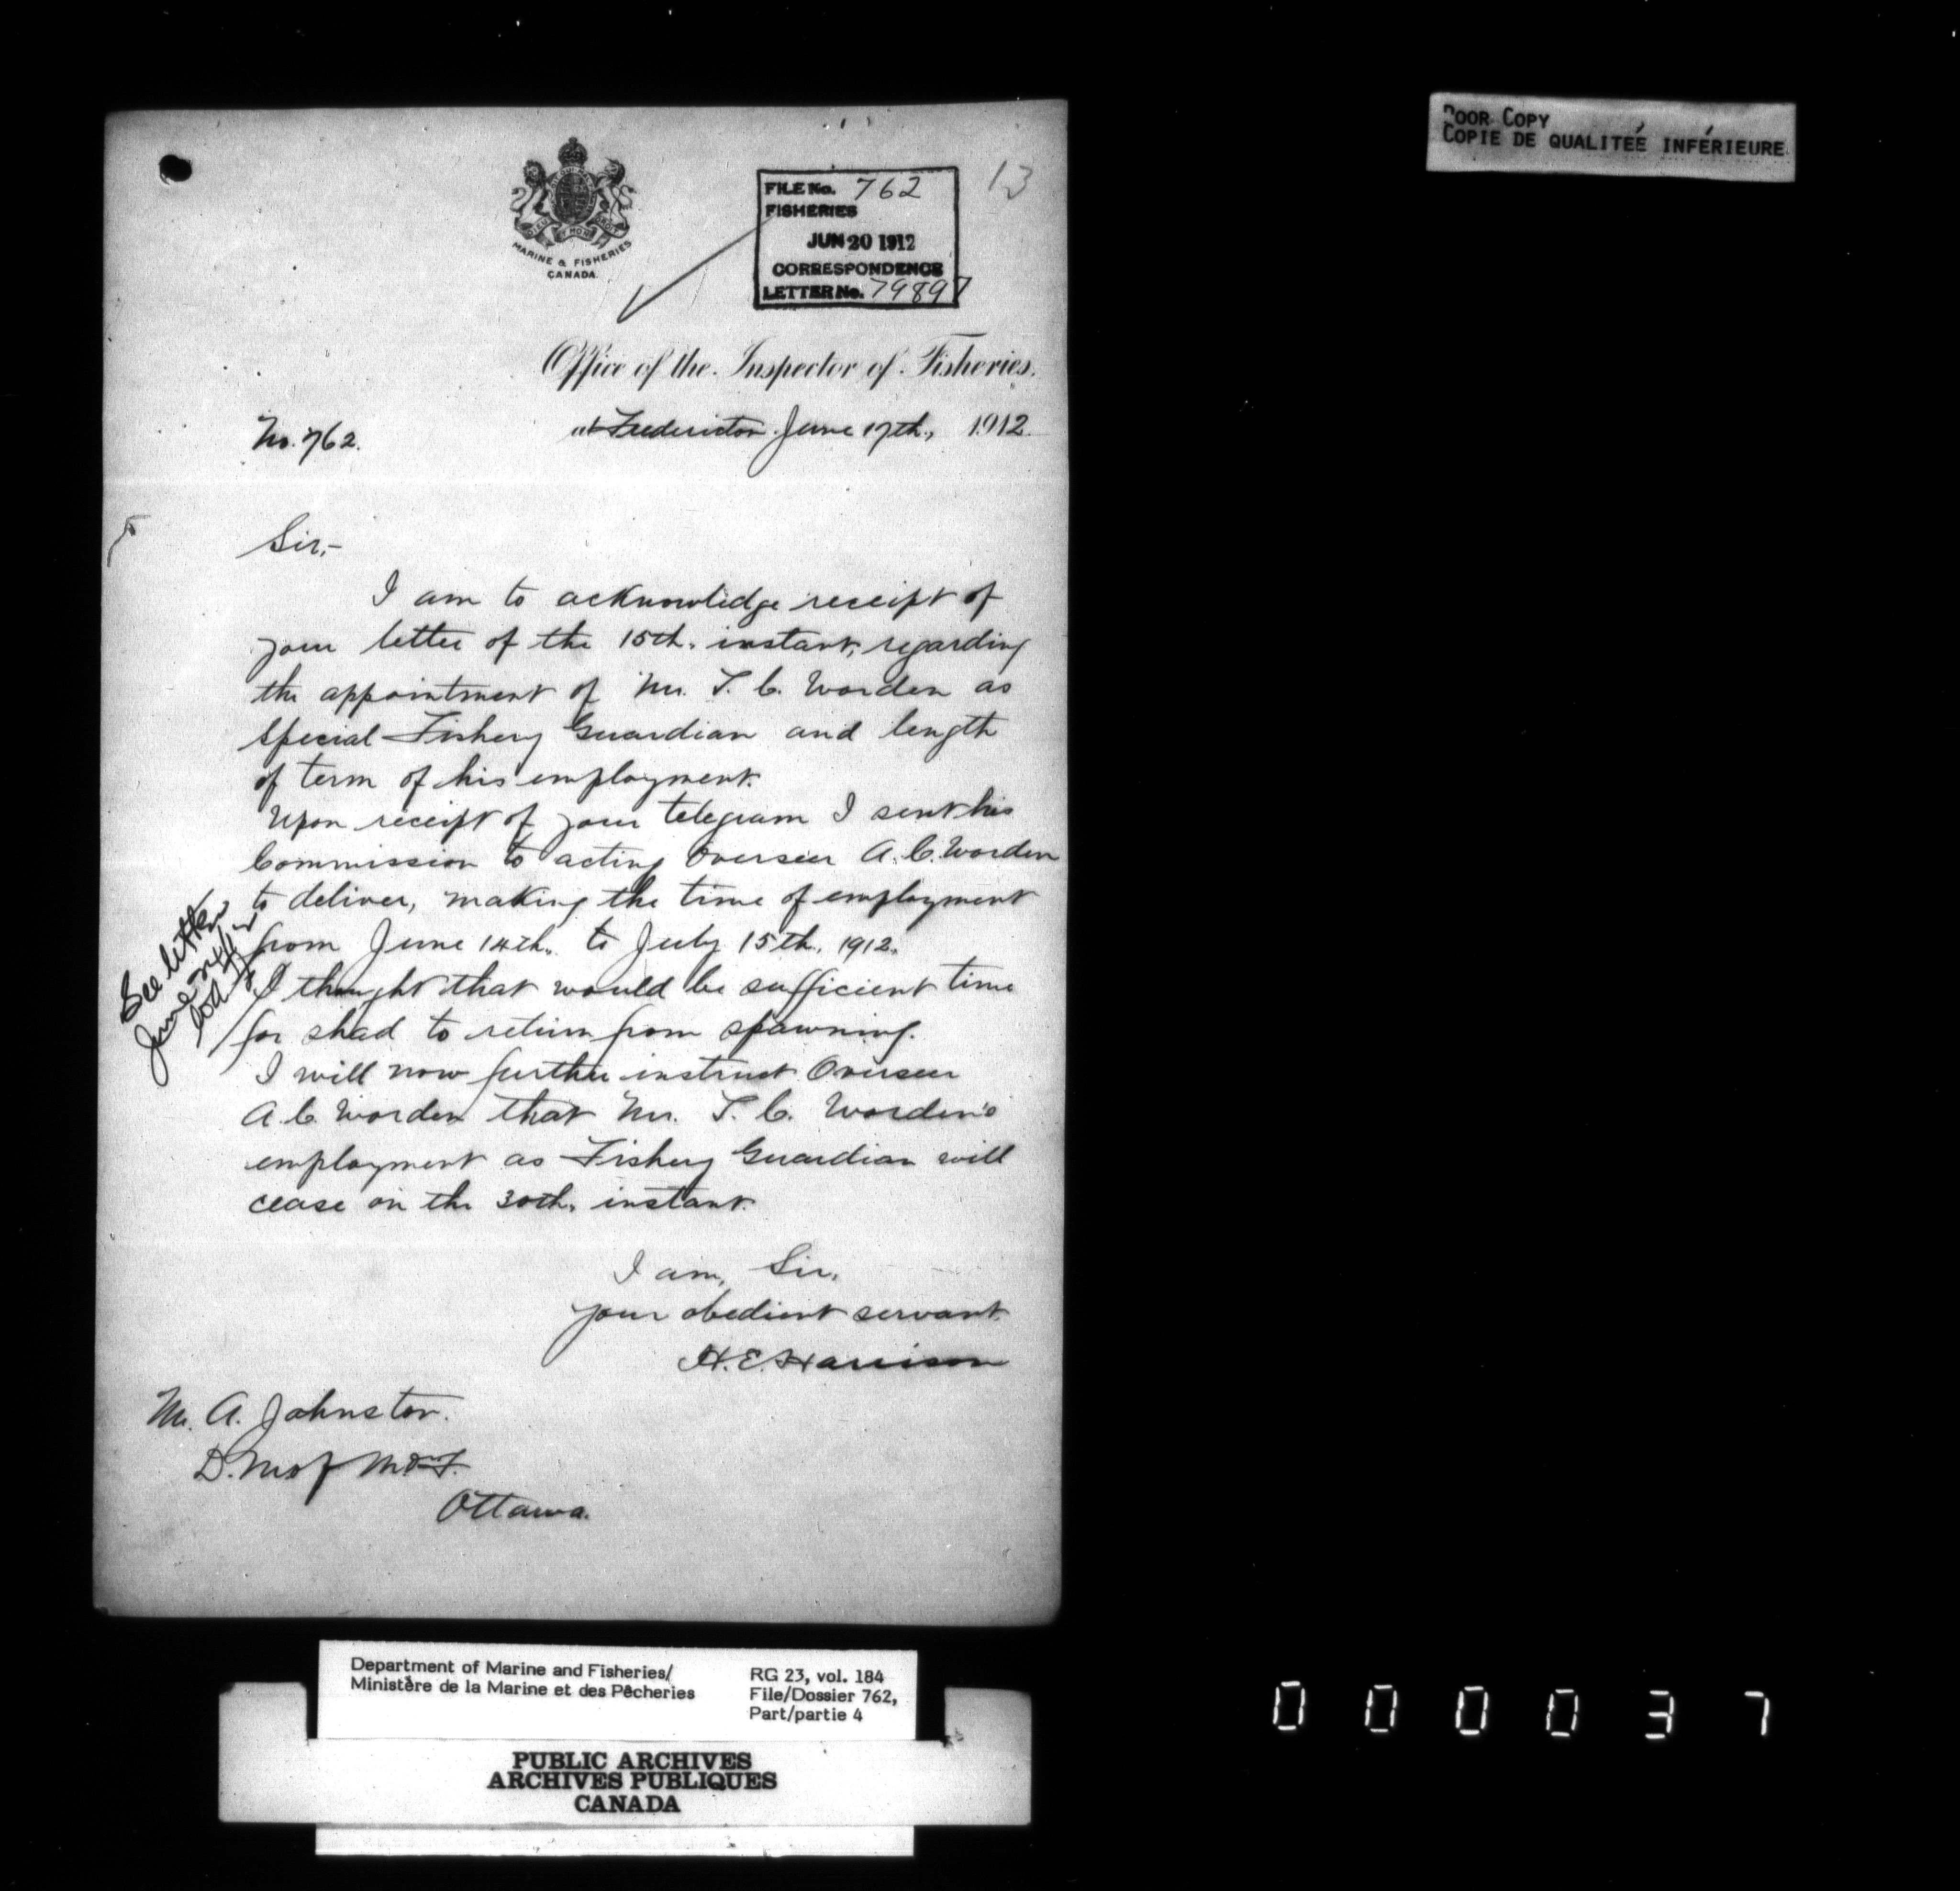 POOR COPY
COPIE DE QUALITÉE INFÉRIEURE
13
FILE No. 762
FISHERIES
JUN 20 1912
CORRESPONDENCE
LETTER No. 79897
DIEU ET MON DROIT
MARINE & FISHERIES
CANADA.
Office of the Inspector of Fisheries.
No. 762.
at Fredericton June 17th, 1912.
Sir,-
I am to acknowledge receipt of
your letter of the 15th. instant, regarding
the appointment of Mr. T. C. Worden as
Special Fishery Guardian and length
of term of his employment.
Upon receipt of your telegram I sent his
Commission to acting Overseer A. C. Worden
to deliver, making the time of employment
from June 14th. to July 15th. 1912.
I thought that would be sufficient time
for shad to return from spawning.
I will now further instruct Overseer
A. C. Worden that Mr. T. C. Worden's
employment as Fishery Guardian will
cease on the 30th. instant.
See letter
June 24/12
I am, Sir,
your obedient servant.
H. E. Harrison
Mr. A. Johnston.
D. M of M & F.
Ottawa.
Department of Marine and Fisheries/
Ministère de la Marine et des Pêcheries
RG 23, vol. 184
File/Dossier 762,
Part/partie 4
PUBLIC ARCHIVES
ARCHIVES PUBLIQUES
CANADA
000037